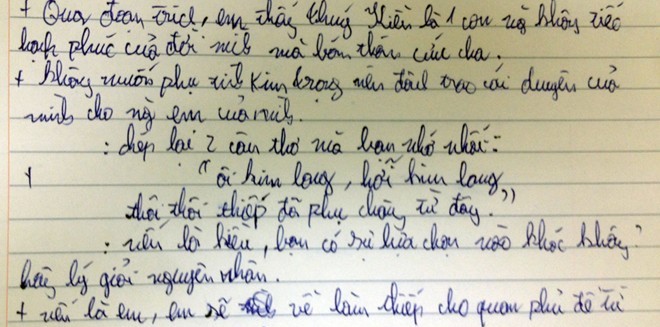 + Qua đoạn trích, em thấy Thuý Kiều là 1 con ng không tiếc
hạnh phúc của đời mình mà bán thân cứu cha.
+ không muốn phụ tình Kim trọng nên đành trao cái duyên của
mình cho ng em của mình.
: chép lại 2 câu thơ mà bạn nhớ nhất:
+ "ôi kim lang, hỡi kim lang
thôi thôi thiếp đã phụ chàng từ đây."
: nếu là kiều, bạn có sự lựa chọn nào khác không?
hãy lý giải nguyên nhân.
+ nếu là em, em sẽ về làm thiếp cho quan phủ để từ